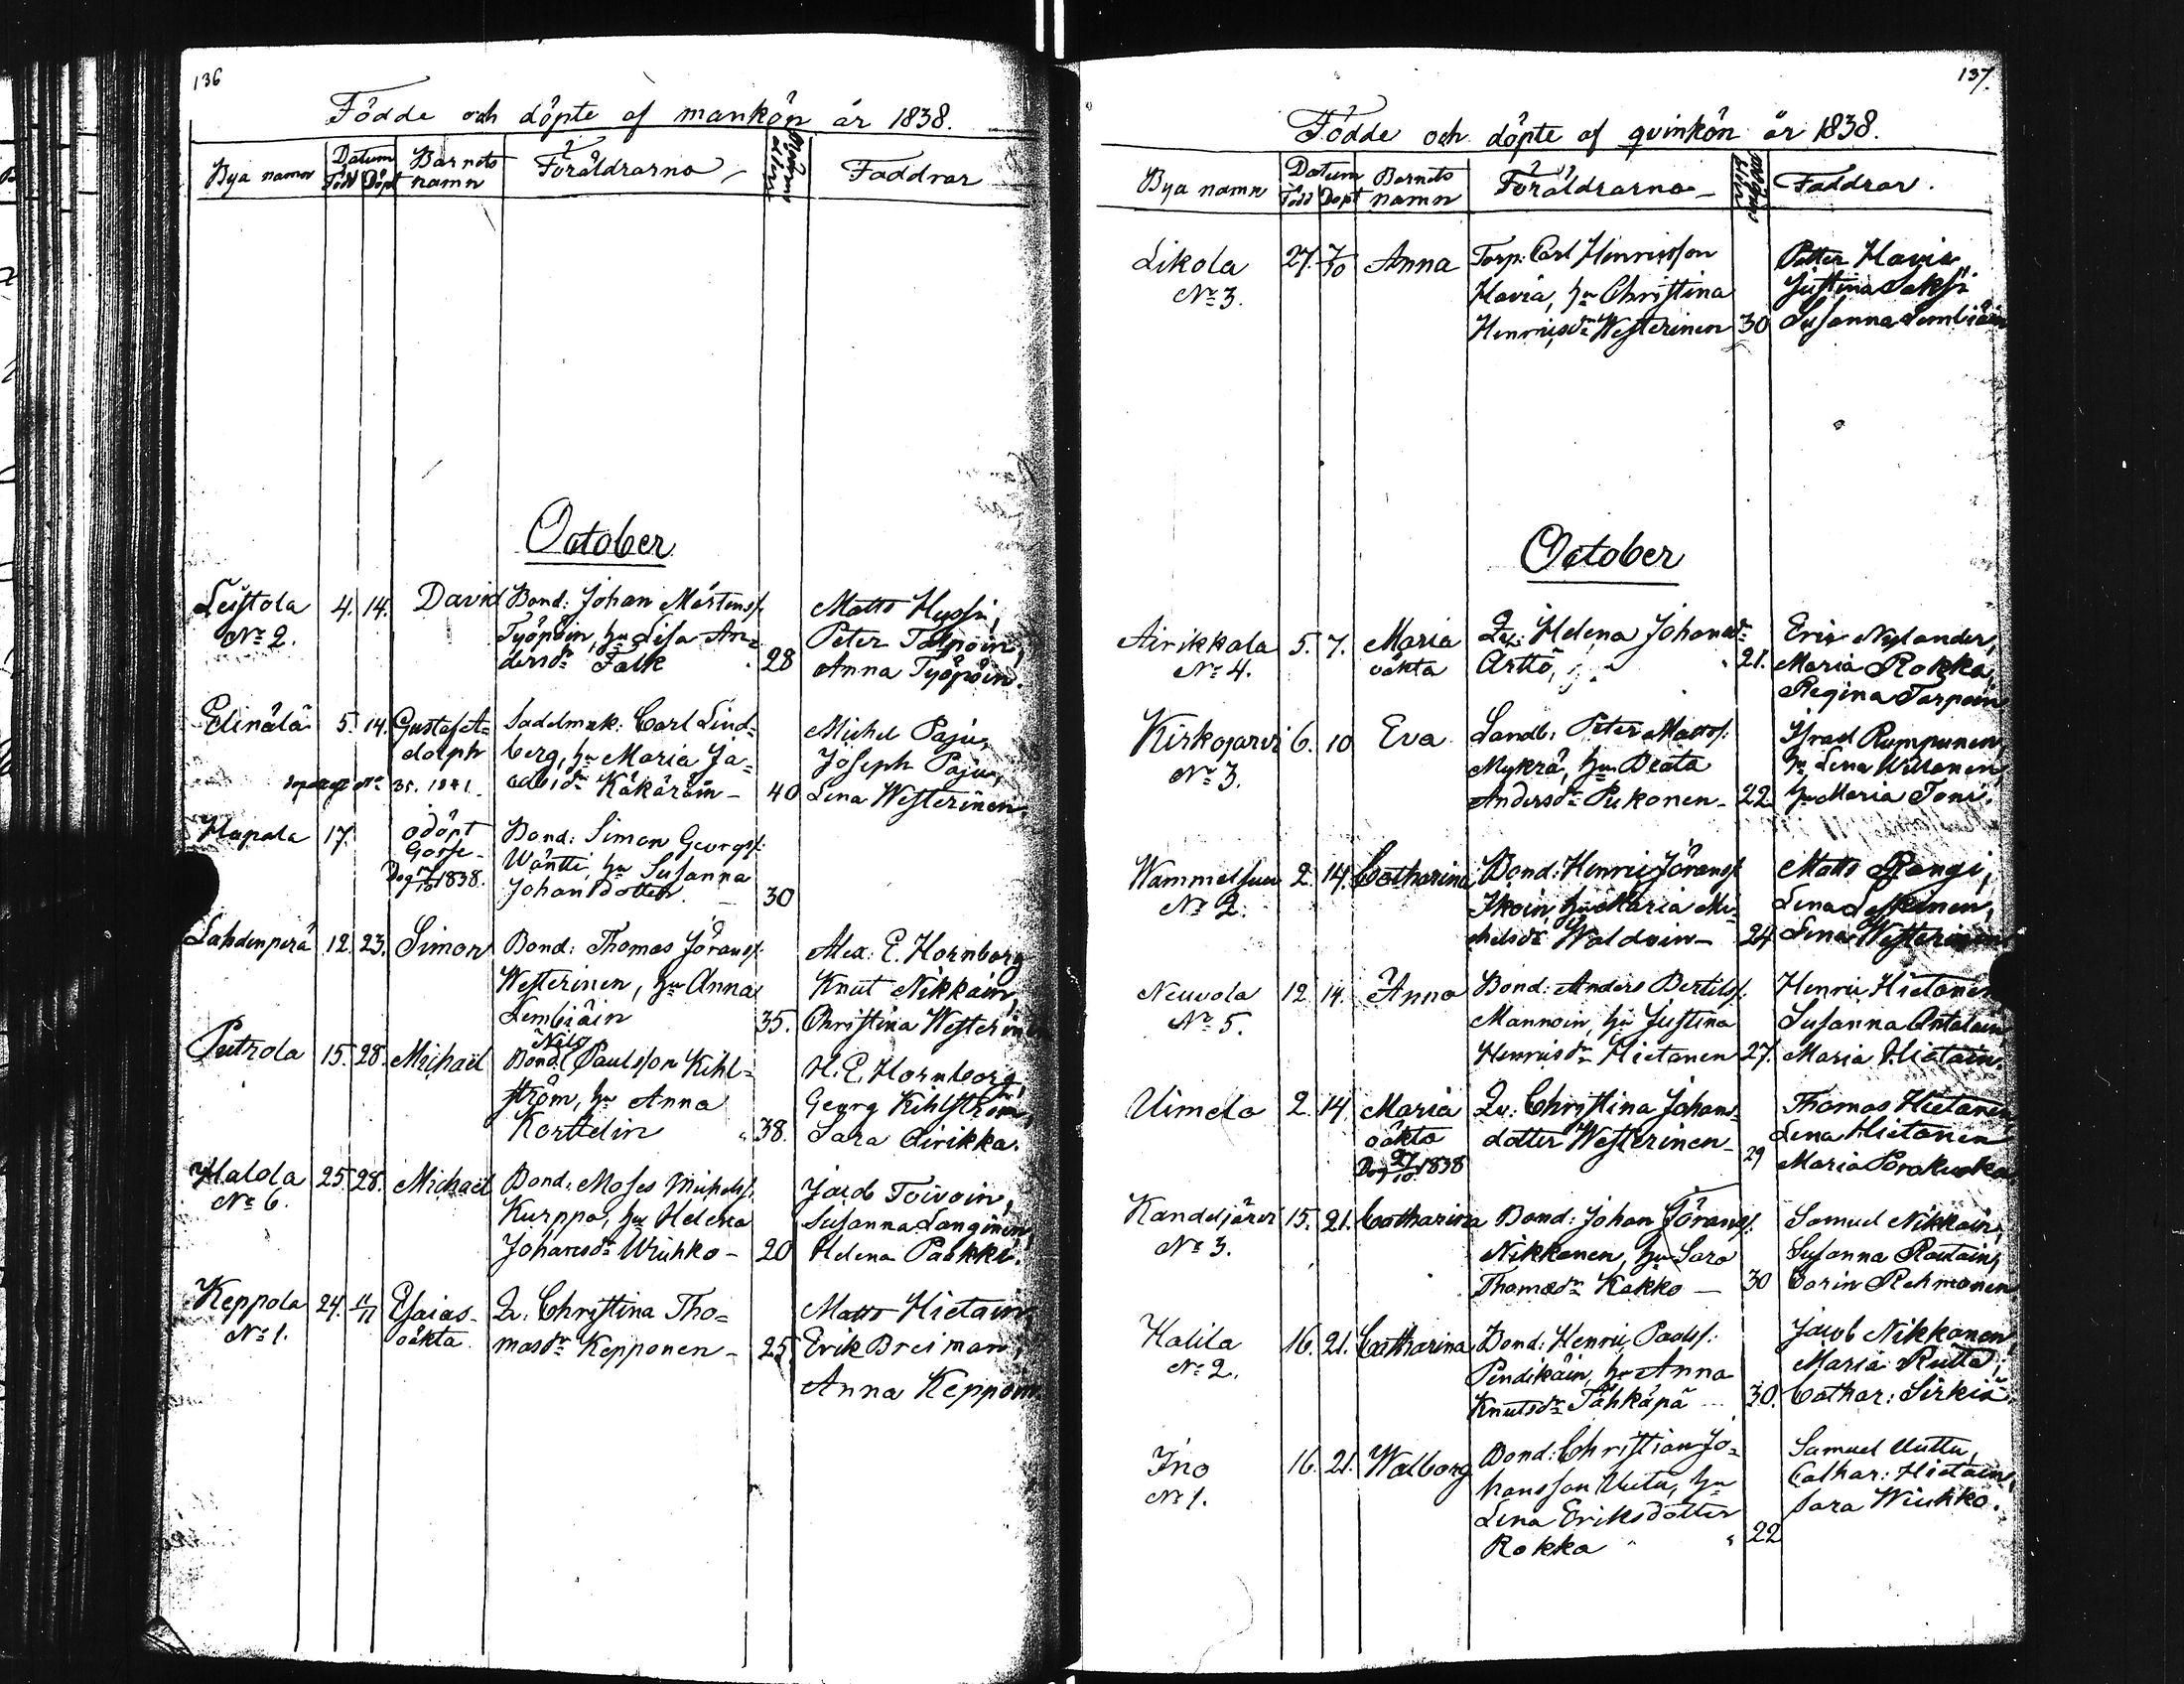 136
Födde och döpte af mankön år 1838.
Bya namn Datum Född Döpt Barnets namn Föräldrarna Modrens ålder Faddrar
October
Leistola 4. 14. David Bond: Johan Mårtenss.
No 2. Työpöin, hu Lisa An=
dersdr Falk 28
Matts Hyssi,
Peter Talpoin,
Anna Työpöin.
Elinälä 5. 14. Gustaf A= Sadelmak: Carl Lind=
dolph berg, hu Maria Ja=
No 35. 1841. cobsdr Käkäräin 40
Michel Paju,
Joseph Paju,
Lena Westerinen.
Hapala 17. odöpt Bond: Simon Georgss.
Gosse Wäntti, hu Susanna
Dog 17/10 1838. Johansdotter 30
Lahdenperä 12. 23. Simon Bond: Thomas Jöranss.
Westerinen, hu Anna
Lembiäin 35.
Alex: E. Hornborg
Knut Nikkain,
Christina Westerinen
Putrola 15. 28. Michaël Bond: Nils Paulsson Kihl=
ström, hu Anna
Korttelin 38.
H. E. Hornborg,
Georg Kihlström,
Sara Airikka.
Halola 25. 28. Michaël Bond: Moses Michelss.
No 6. Kurppa, hu Helena
Johansdr Wiuhko 20
Jacob Toivoin,
Susanna Langinen,
Helena Paukki.
Keppola 24. 4/11 Esaias Q. Christina Tho=
No 1. oäkta masdr Kepponen 25
Matts Hietain,
Erik Breiman,
Anna Keppoin.
137.
Födde och döpte af qvinkön år 1838.
Bya namn Datum Född Döpt Barnets namn Föräldrarna Modrens ålder Faddrar.
Likola 27. 7/10 Anna Torp: Carl Henricsson
No 3. Havia, hu Christina
Henricsdr Westerinen 30
Petter Havia
Justina Saksi
Susanna Lembiäin
October
Airikkala 5. 7. Maria Qv: Helena Johansdr
No 4. oäkta Arttö, 21.
Eric Nylander,
Maria Rokka,
Regina Tarpoin
Kirkojärvi 6. 10 Eva Landb: Peter Mattss.
No 3. Mykrä, hu Beata
Andersdr Pukonen 22
Israel Rumpunen,
hu Lena Willanen,
hu Maria Toni.
Wammelsuu 2. 14. Catharina Bond: Henric Jöranss.
No 2. Ikoin, hu Maria Mi=
chelsdr Waldoin 24
Matts Rongi,
Lena Leskinen,
Lena Westerinen
Neuvola 12. 14. Anna Bond: Anders Bertilss.
No 5. Mannoin, hu Justina
Henricsdr Hietanen 27.
Henric Hietanen
Susanna Antalain,
Maria Hietain.
Uimela 2. 14. Maria Qv: Christina Johans=
oäkta dotter Westerinen 29
Dog 27/10 1838
Thomas Hietanen,
Lena Hietanen
Maria Porakuokka
Kandeljärvi 15. 21. Catharina Bond: Johan Jöranss.
No 3. Nikkanen, hu Sara
Thomasdr Kakko 30
Samuel Nikkain,
Susanna Rautain,
Carin Rahmonen
Halila 16. 21. Catharina Bond: Henric Paulss.
No 2. Pendikäin, hu Anna
Knutsdr Tähkäpä 30.
Jacob Nikkanen,
Maria Rutta,
Cathar: Sirkiä.
Ino 16. 21. Walborg Bond: Christian Jo=
No 1. hansson Uutu, hu
Lena Eriksdotter
Rokka 22
Samuel Uuttu,
Cathar: Hietain,
Sara Wiuhko.